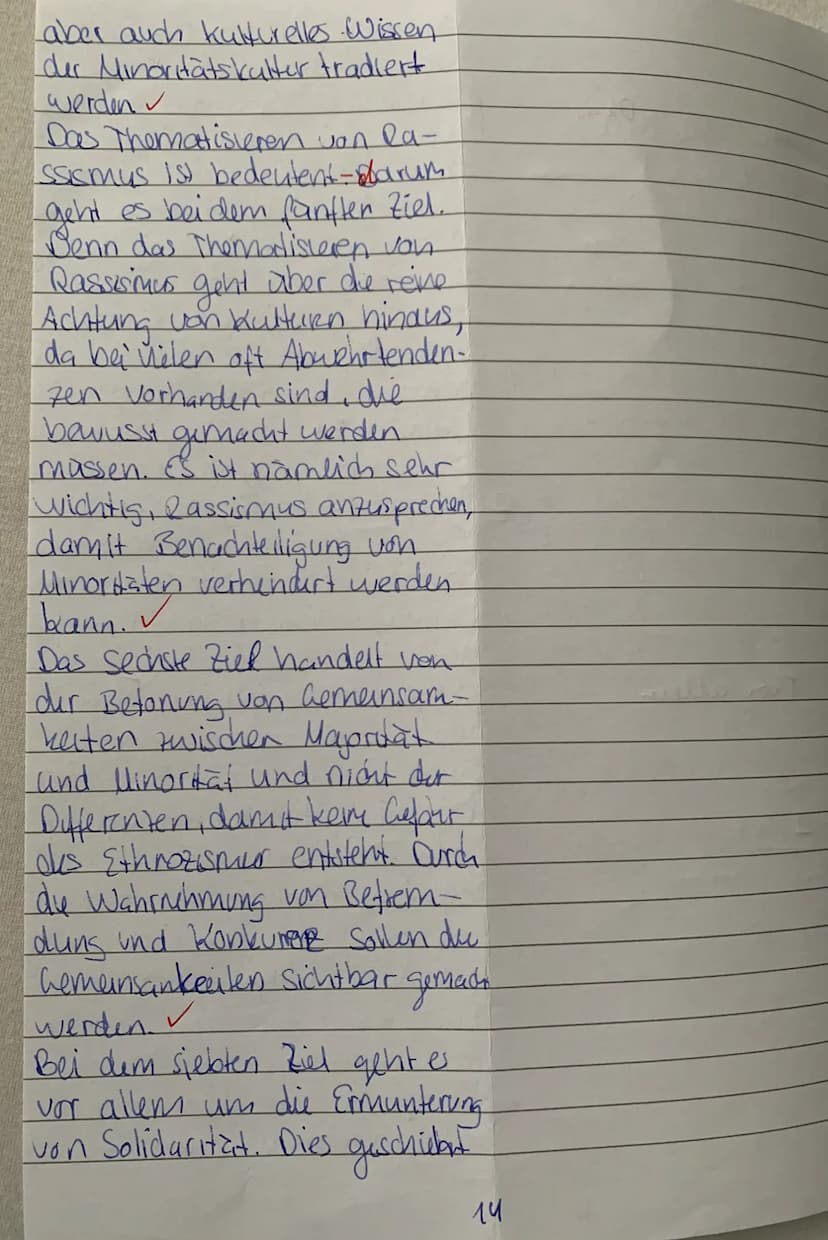 aber auch kulturelles Wissen
der Minoritätskultur tradiert
werden ✓
Das Thematisieren von Ra-
ssismus ist bedeutent-darum
geht es bei dem fünften Ziel.
Denn das Thematisieren von
Rassismus geht über die reine
Achtung von Kulturen hinaus,
da bei vielen oft Abwehrtenden-
zen vorhanden sind, die
bewusst gemacht werden
müssen. Es ist nämlich sehr
wichtig, Rassismus anzusprechen,
damit Benachteiligung von
Minoritäten verhindert werden
kann. ✓
Das sechste Ziel handelt von
der Betonung von Gemeinsam-
keiten zwischen Majorität
und Minorität und nicht der
Differenzen, damit keine Gefahr
des Ethnozismus entsteht. Durch
die Wahrnehmung von Befrem-
dung und sollen die
Gemeinsankeiten sichtbar gemacht
werden. ✓
Bei dem siebten Ziel geht es
vor allem um die Ermunterung
von Solidarität. Dies geschieht
14